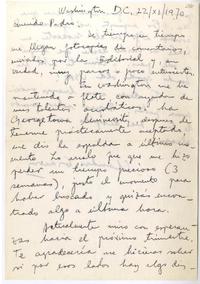 Washington D.C., 22/XI/1970.
Querido Pedro:
De tiempo en tiempo
me llegan fotocopias de comentarios,
enviados por la Editorial y, en
verdad, muy parcos o poco entusiastas.
En Washington me he
mis "talentos"
Georgetown University, después de
tenerme prácticamente aceptado,
me dio la espalda a último mo-
mento. Lo malo que me hizo
perder un tiempo precioso (3
semanas), justo el momento para
haber buscado y quizás encon-
trado algo a última hora.
Actualmente miro con esperan-
zas hacia el próximo trimestre.
Te agradecería me hicieras saber
si por esos lados hay algo